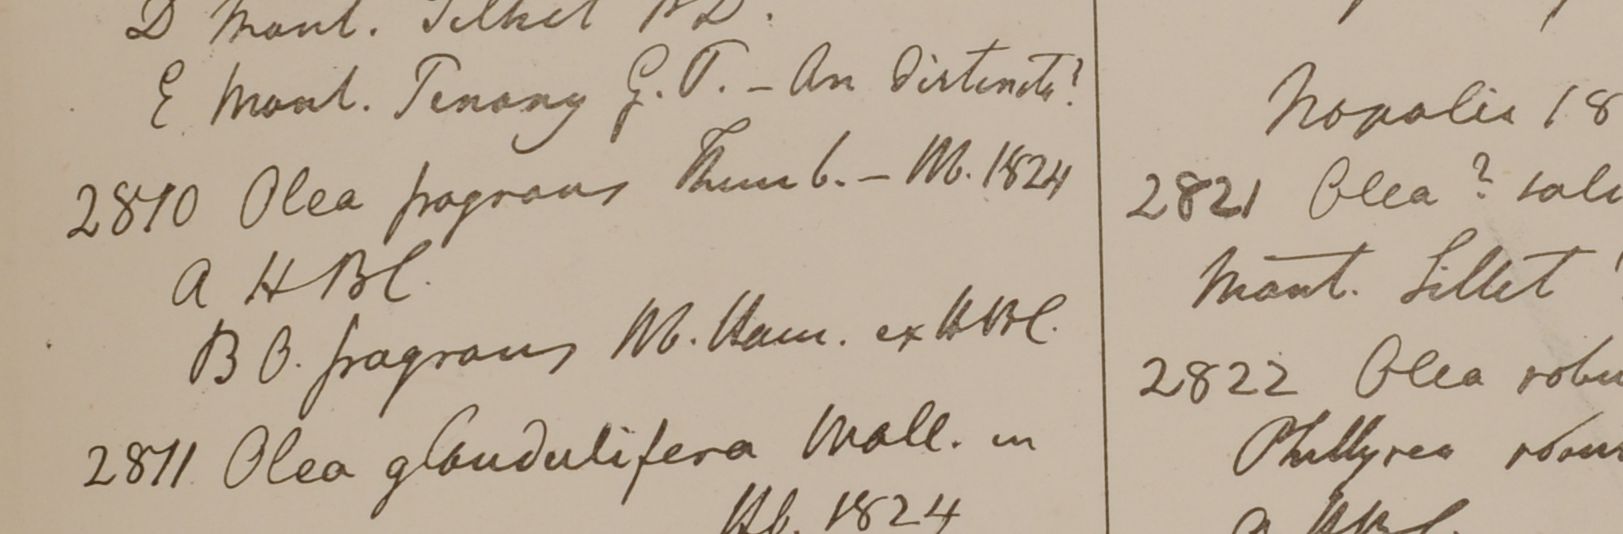 D Mont. Silhet
E Mont. Penang G.P. – An distincta?
2810 Olea fragrans Thunb. – Hb. 1824
A HBC.
B O. fragrans Hb. Ham. ex HBC.
2811 Olea glandulifera Wall. in
Hb. 1824
Napalia 18
2821 Olea ?
Mont. Sillet
2822 Olea robu
Phillyrea robu
a HBC.